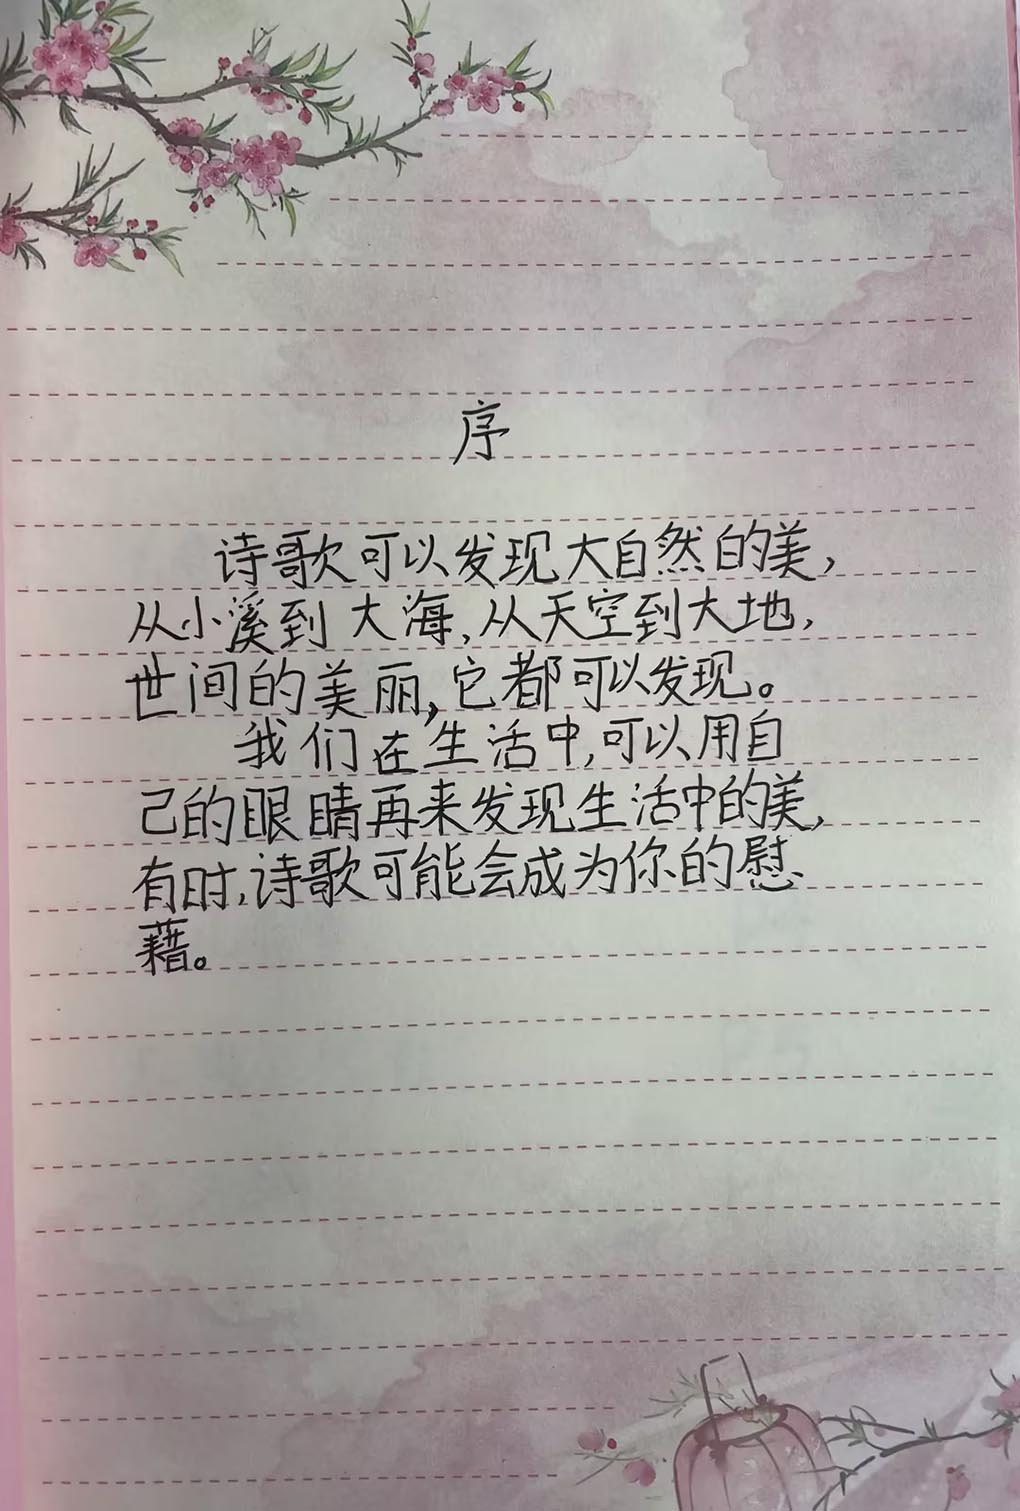 序
诗歌可以发现大自然的美，
从小溪到大海，从天空到大地，
世间的美丽，它都可以发现。
我们在生活中，可以用自
己的眼睛再来发现生活中的美，
有时，诗歌可能会成为你的慰
藉。